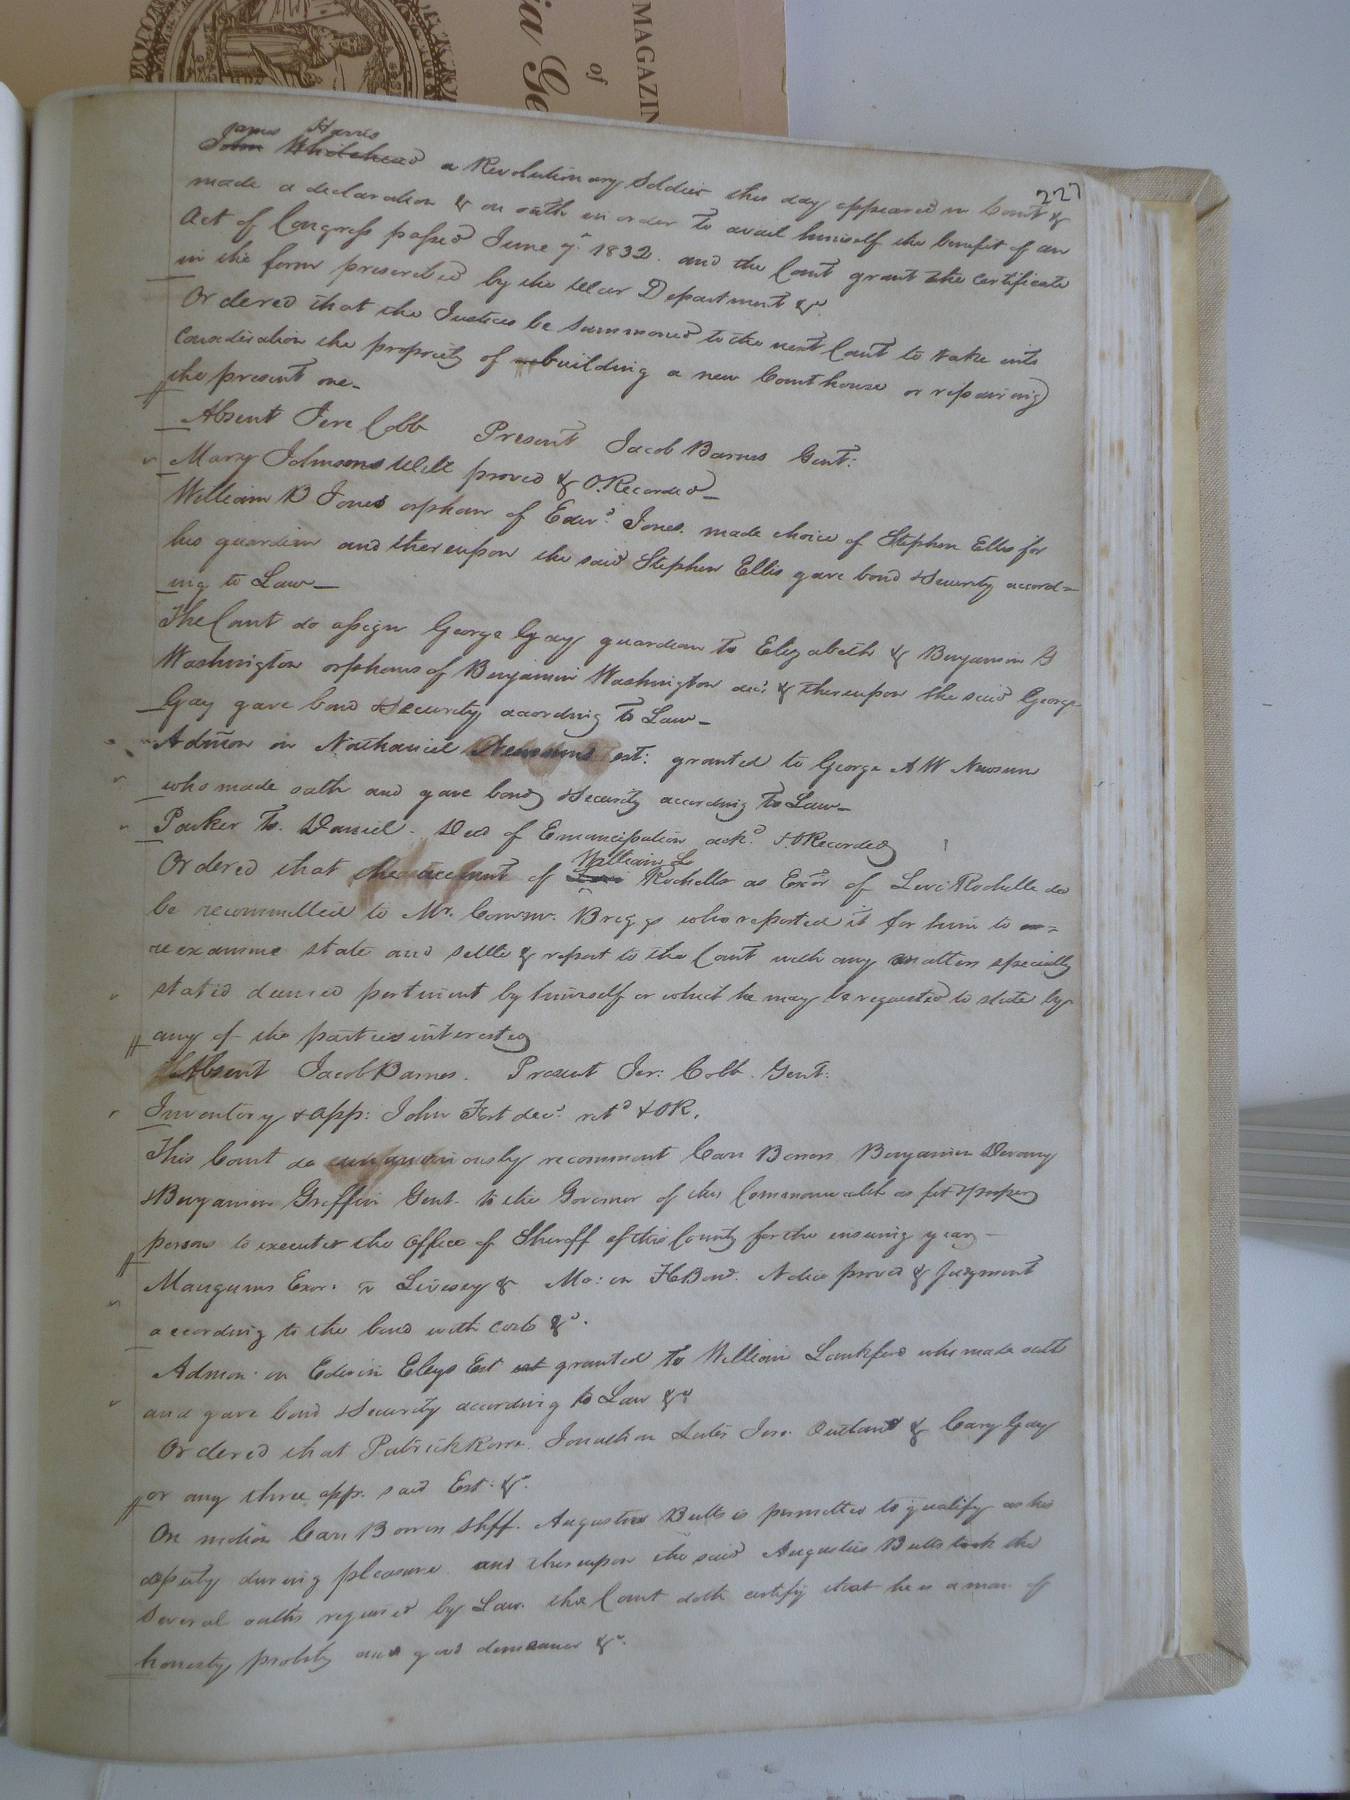 MAGAZIN
of
ia Ge
227
James Harris
John Whitehead a Revolutionary Soldier this day appeared in Court &
made a declaration & on oath in order to avail himself the benefit of an
Act of Congress passed June 7. 1832. and the Court grant the certificate
in the form prescribed by the War Department &c
Ordered that the Justices be summoned to the next Court to take into
consideration the propriety of building a new Courthouse or repairing
the present one-
Absent Jere Cobb Present Jacob Barnes Gent:
Mary Johnsons Will proved & O.Recorded-
William B Jones orphan of Edwd. Jones. made choice of Stephen Ellis for
his guardian and thereupon the said Stephen Ellis gave bond & Security accord=
ing to Law-
The Court do assign George Gay guardian to Elizabeth & Benjamin G
Washington orphans of Benjamin Washington dec: & thereupon the said George
Gay gave bond & Security according to Law-
Admon on Nathaniel Newsums est: granted to George A W Newsum
who made oath and gave bond & Security according to Law-
Parker To. Daniel. Deed of Emancipation ackd. & O Recorded
William L
Ordered that the account of Levi Rochelle as Exor of Levi Rochelle dec
be recommitted to Mr. Commr. Briggs who reported it for him to
re examine state and settle & report to the Court with any matters specially
stated deemed pertinent by himself or which he may be requested to state by
any of the parties interested
Absent Jacob Barnes. Present Jer: Cobb. Gent:
Inventory & app: John Fort decd. retd & OR.
This Court do unanimously recomment Carr Bowers Benjamin Devany
& Benjamin Griffin Gent. to the Governor of this Commonwealth as fit & proper
persons to execute the office of Sheriff of this County for the ensuing year-
Mangums Exor. v Livesay & Mo: on F Bond. Notice proved & Judgment
according to the bond with costs &c.
Admon on Edwin Eleys Est est granted to William Lankford who made oath
and gave bond & Security according to Law &c
Ordered that Patrick Jonathan Jno. Outland & Cary Gay
or any three appr. said Est. &c.
On motion Carr Bowers Shff. Augustus Butts is permitted to qualify as his
deputy during pleasure and thereupon the said Augustus Butts took the
several oaths required by Law. the Court doth certify that he is a man of
honesty probity and good demeanor &c.